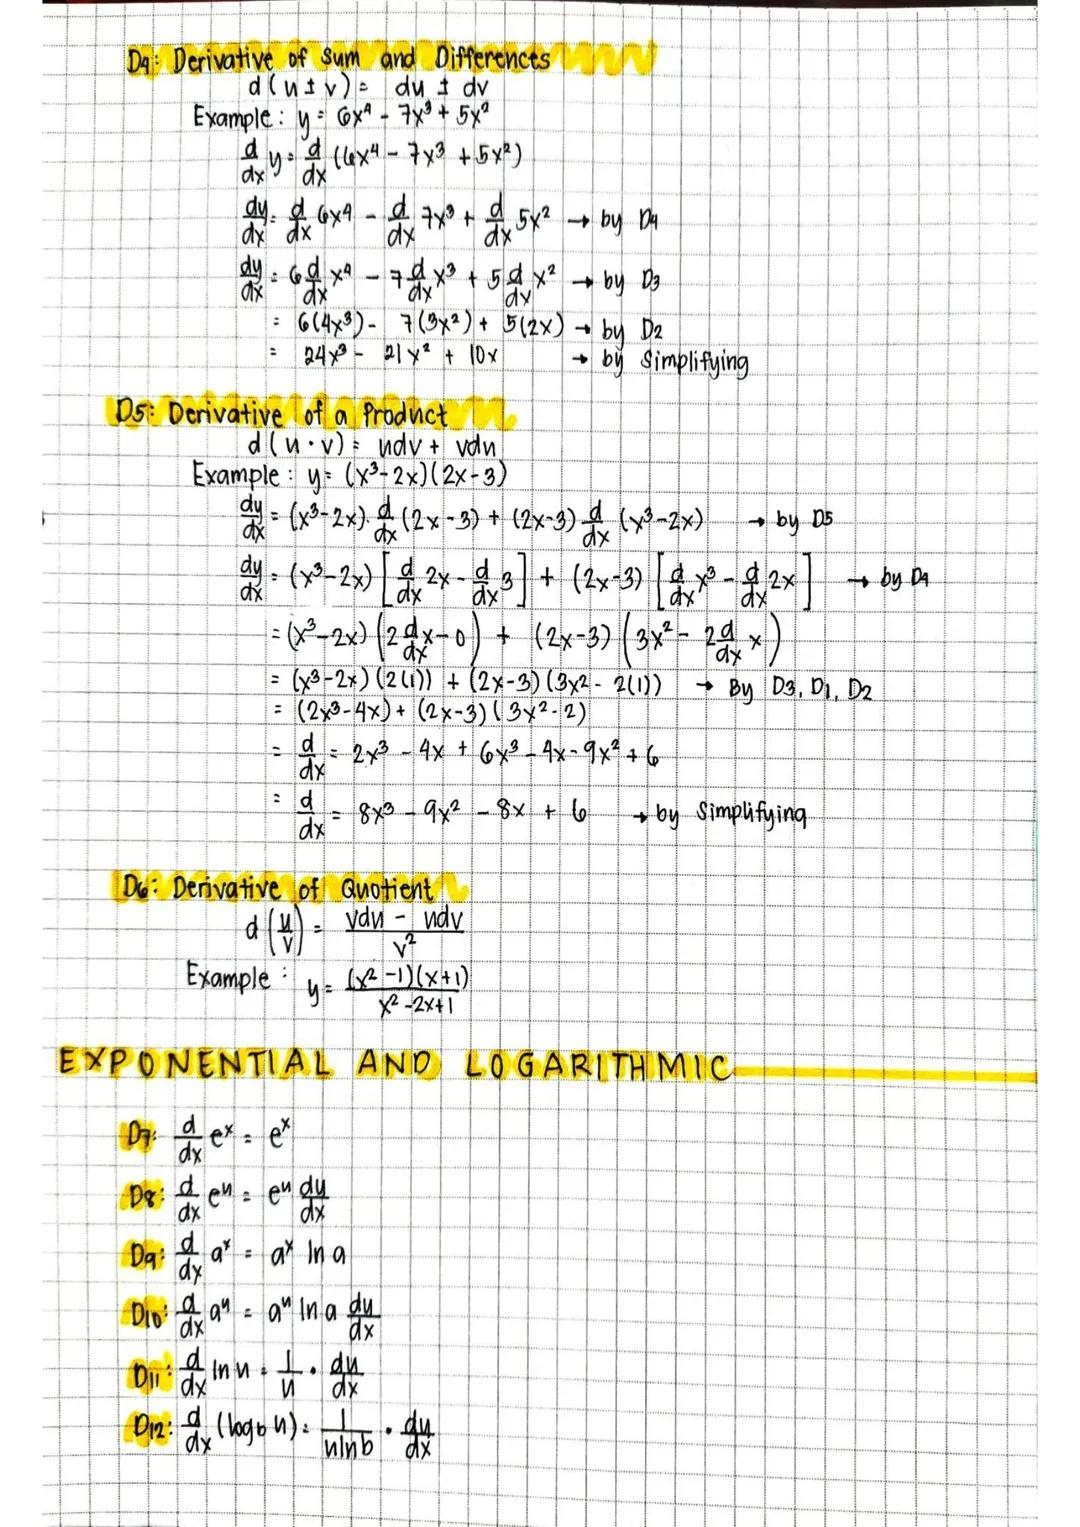 D4: Derivative of Sum and Differences
d(u ± v) = du ± dv
Example: y = 6x⁴ - 7x³ + 5x²
d/dx y = d/dx (6x⁴ - 7x³ + 5x²)
dy/dx = d/dx 6x⁴ - d/dx 7x³ + d/dx 5x² → by D4
dy/dx = 6 d/dx x⁴ - 7 d/dx x³ + 5 d/dx x² → by D3
= 6(4x³) - 7(3x²) + 5(2x) → by D2
= 24x³ - 21x² + 10x → by Simplifying
D5: Derivative of a Product
d(u·v) = udv + vdu
Example: y = (x³-2x)(2x-3)
dy/dx = (x³-2x) · d/dx (2x-3) + (2x-3) d/dx (x³-2x) → by D5
dy/dx = (x³-2x) [d/dx 2x - d/dx 3] + (2x-3) [d/dx x³ - d/dx 2x] → by D4
= (x³-2x) (2 d/dx x-0) + (2x-3) (3x² - 2 d/dx x)
= (x³-2x)(2(1)) + (2x-3)(3x² - 2(1)) → By D3, D1, D2
= (2x³-4x) + (2x-3)(3x²-2)
= d/dx = 2x³ - 4x + 6x³ - 4x - 9x² + 6
= d/dx = 8x³ - 9x² - 8x + 6 → by Simplifying
D6: Derivative of Quotient
d(u/v) = vdu - udv / v²
Example: y = (x²-1)(x+1) / x²-2x+1
EXPONENTIAL AND LOGARITHMIC
D7: d/dx eˣ = eˣ
D8: d/dx eᵘ = eᵘ du/dx
D9: d/dx aˣ = aˣ ln a
D10: d/dx aᵘ = aᵘ ln a du/dx
D11: d/dx ln u = 1/u · du/dx
D12: d/dx (log b u) = 1/u ln b · du/dx